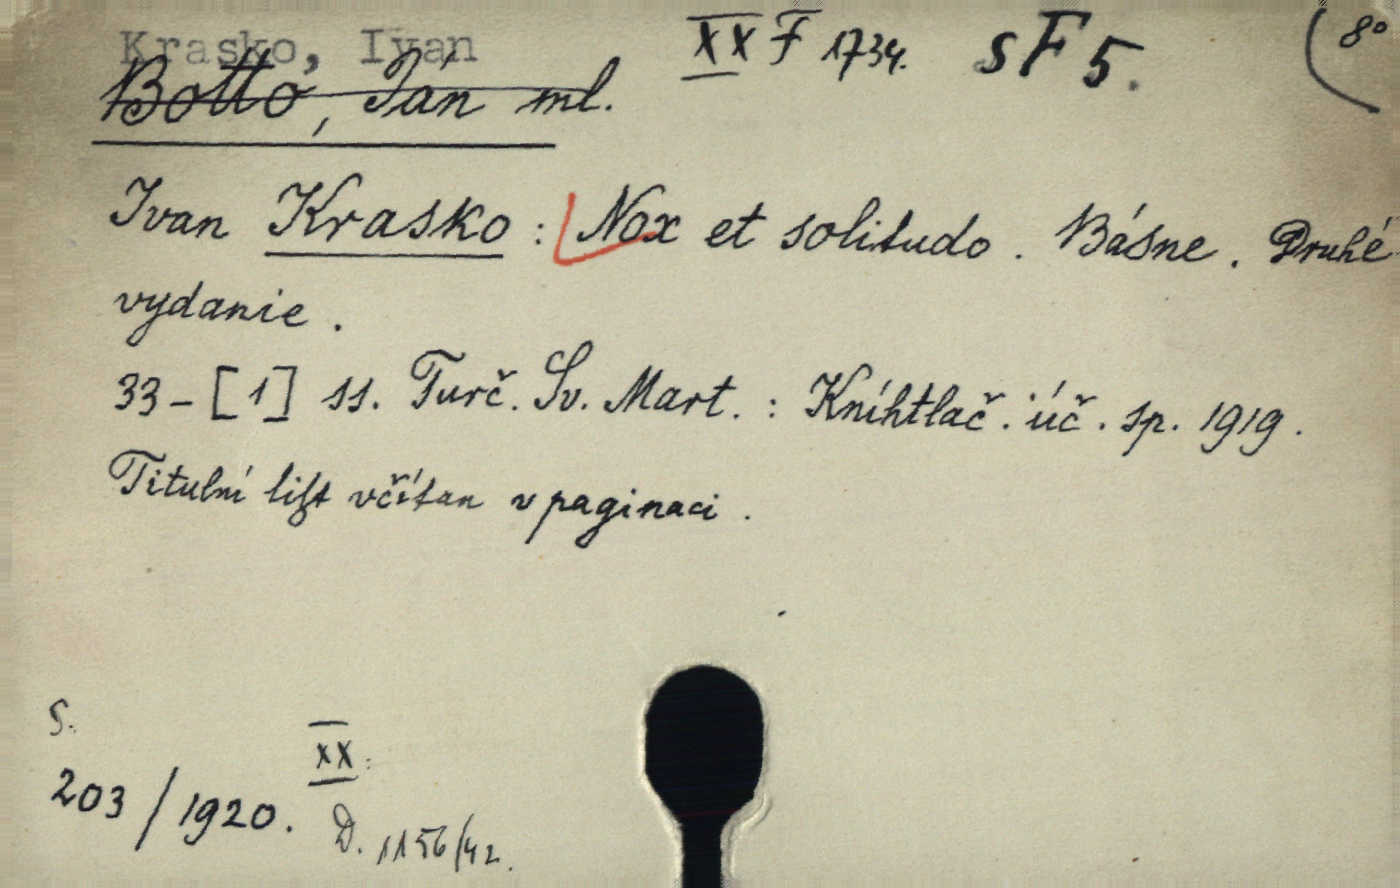 Krasko, Ivan XX F 1734. sF5. 8°
Botto, Ján ml.
Ivan Krasko: Nox et solitudo. Básne. Druhé
vydanie.
33-[1] ss. Turč. Sv. Mart.: Kníhtlač. úč. sp. 1919.
Titulní list včítan v paginaci.
S.
XX.
203/1920.
D. 1156/42.